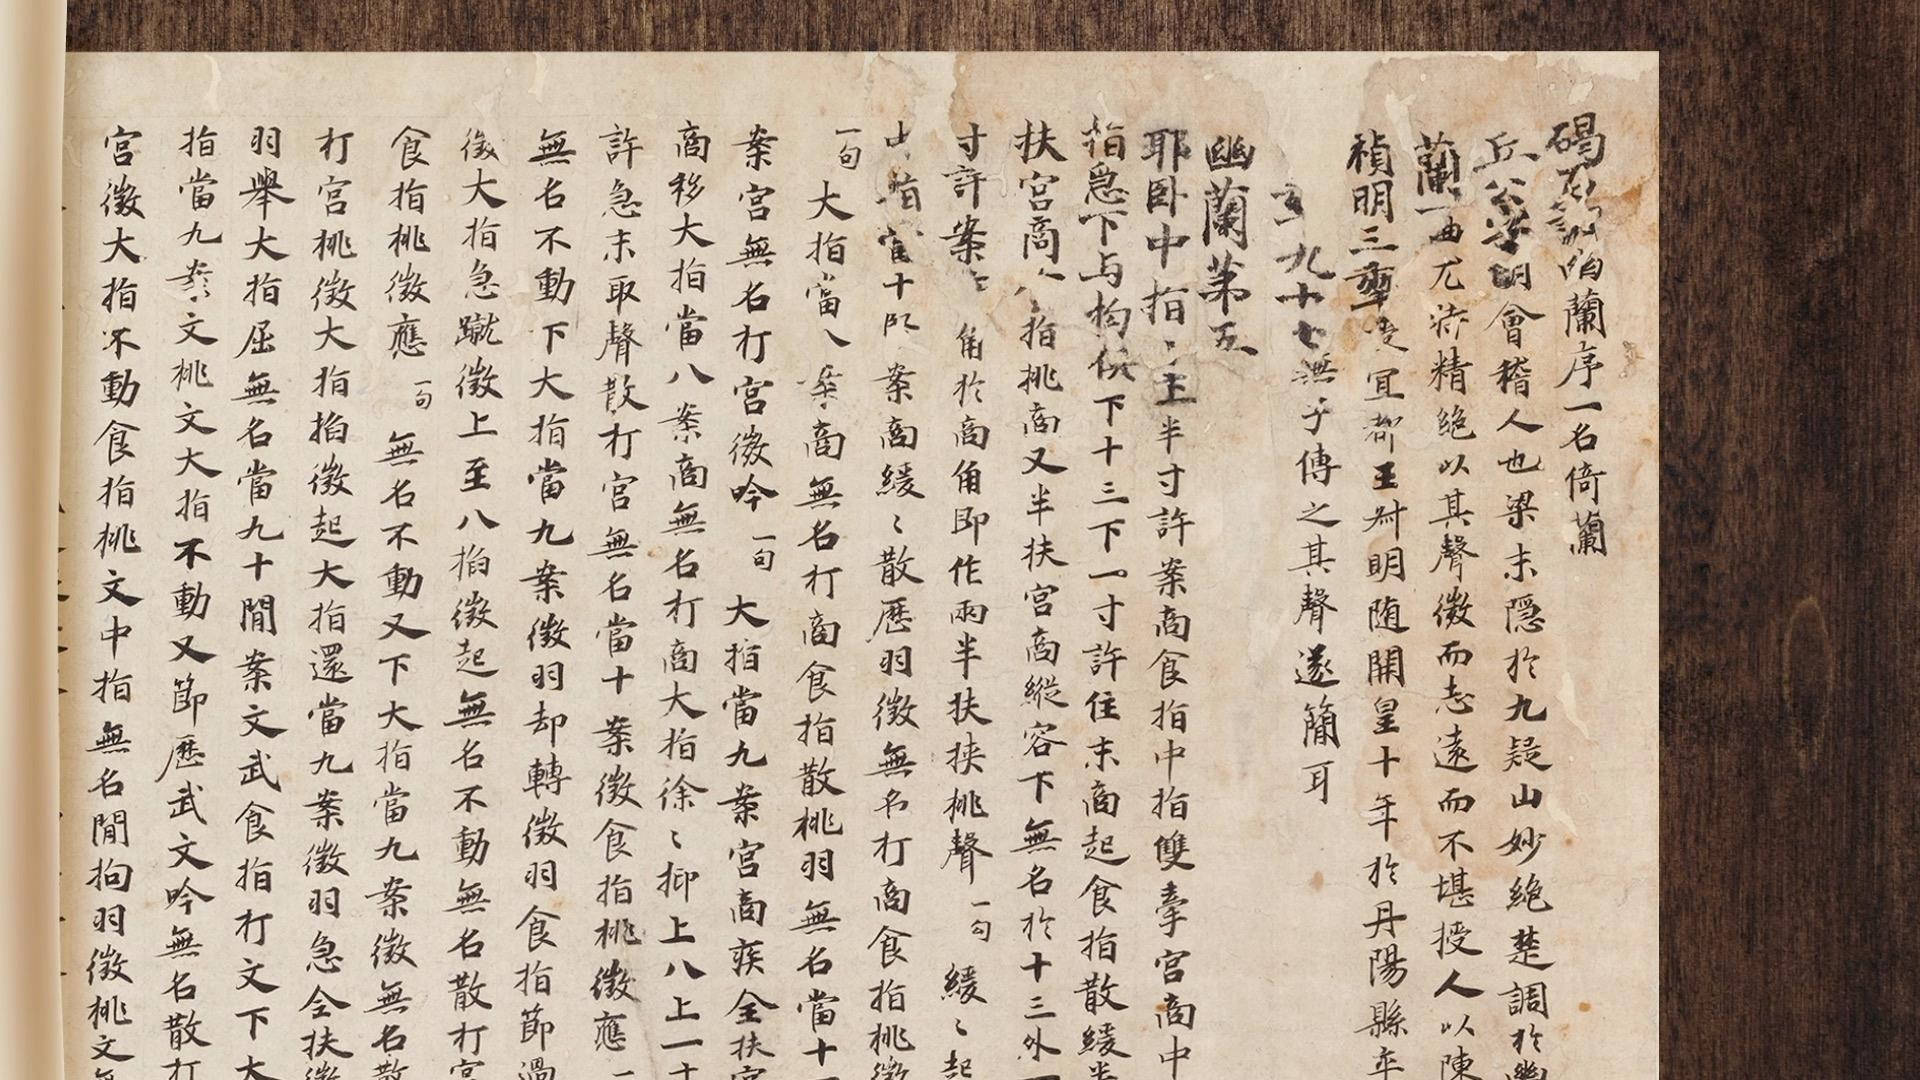 碣石調幽蘭序一名倚蘭
丘公字明會稽人也梁末隱於九疑山妙絕楚調於幽
蘭一曲尤特精絕以其聲微而志遠而不堪授人以陳
禎明三年授宜都王叔明隨開皇十年於丹陽縣卒
九十七無子傳之其聲遂簡耳
幽蘭第五
耶臥中指半寸許案商食指中指雙牽宮商中
指急下与拘俱下十三下一寸許住末商起食指散緩半
扶宮商食指挑商又半扶宮商縱容下無名於十三外一
寸許案商角於商角即作兩半扶挾挑聲一句緩〻起
指當十案商緩〻散歷羽徵無名打商食指挑徵
一句大指當八案商無名打商食指散挑羽無名當十一
案宮無名打宮徵吟一句大指當九案宮商疾全扶宮
商移大指當八案商無名打商大指徐〻抑上八上一寸
許急末取聲散打宮無名當十案徵食指挑徵應一
無名不動下大指當九案徵羽却轉徵羽食指節過
徵大指急蹴徵上至八掐徵起無名不動無名散打宮
食指挑徵應一句無名不動又下大指當九案徵無名散
打宮挑徵大指掐徵起大指還當九案徵羽急全扶徵
羽舉大指屈無名當九十間案文武食指打文下大
指當九案文挑文大指不動又節歷武文吟無名散打
宮徵大指不動食指挑文中指無名間拘羽徵挑文無